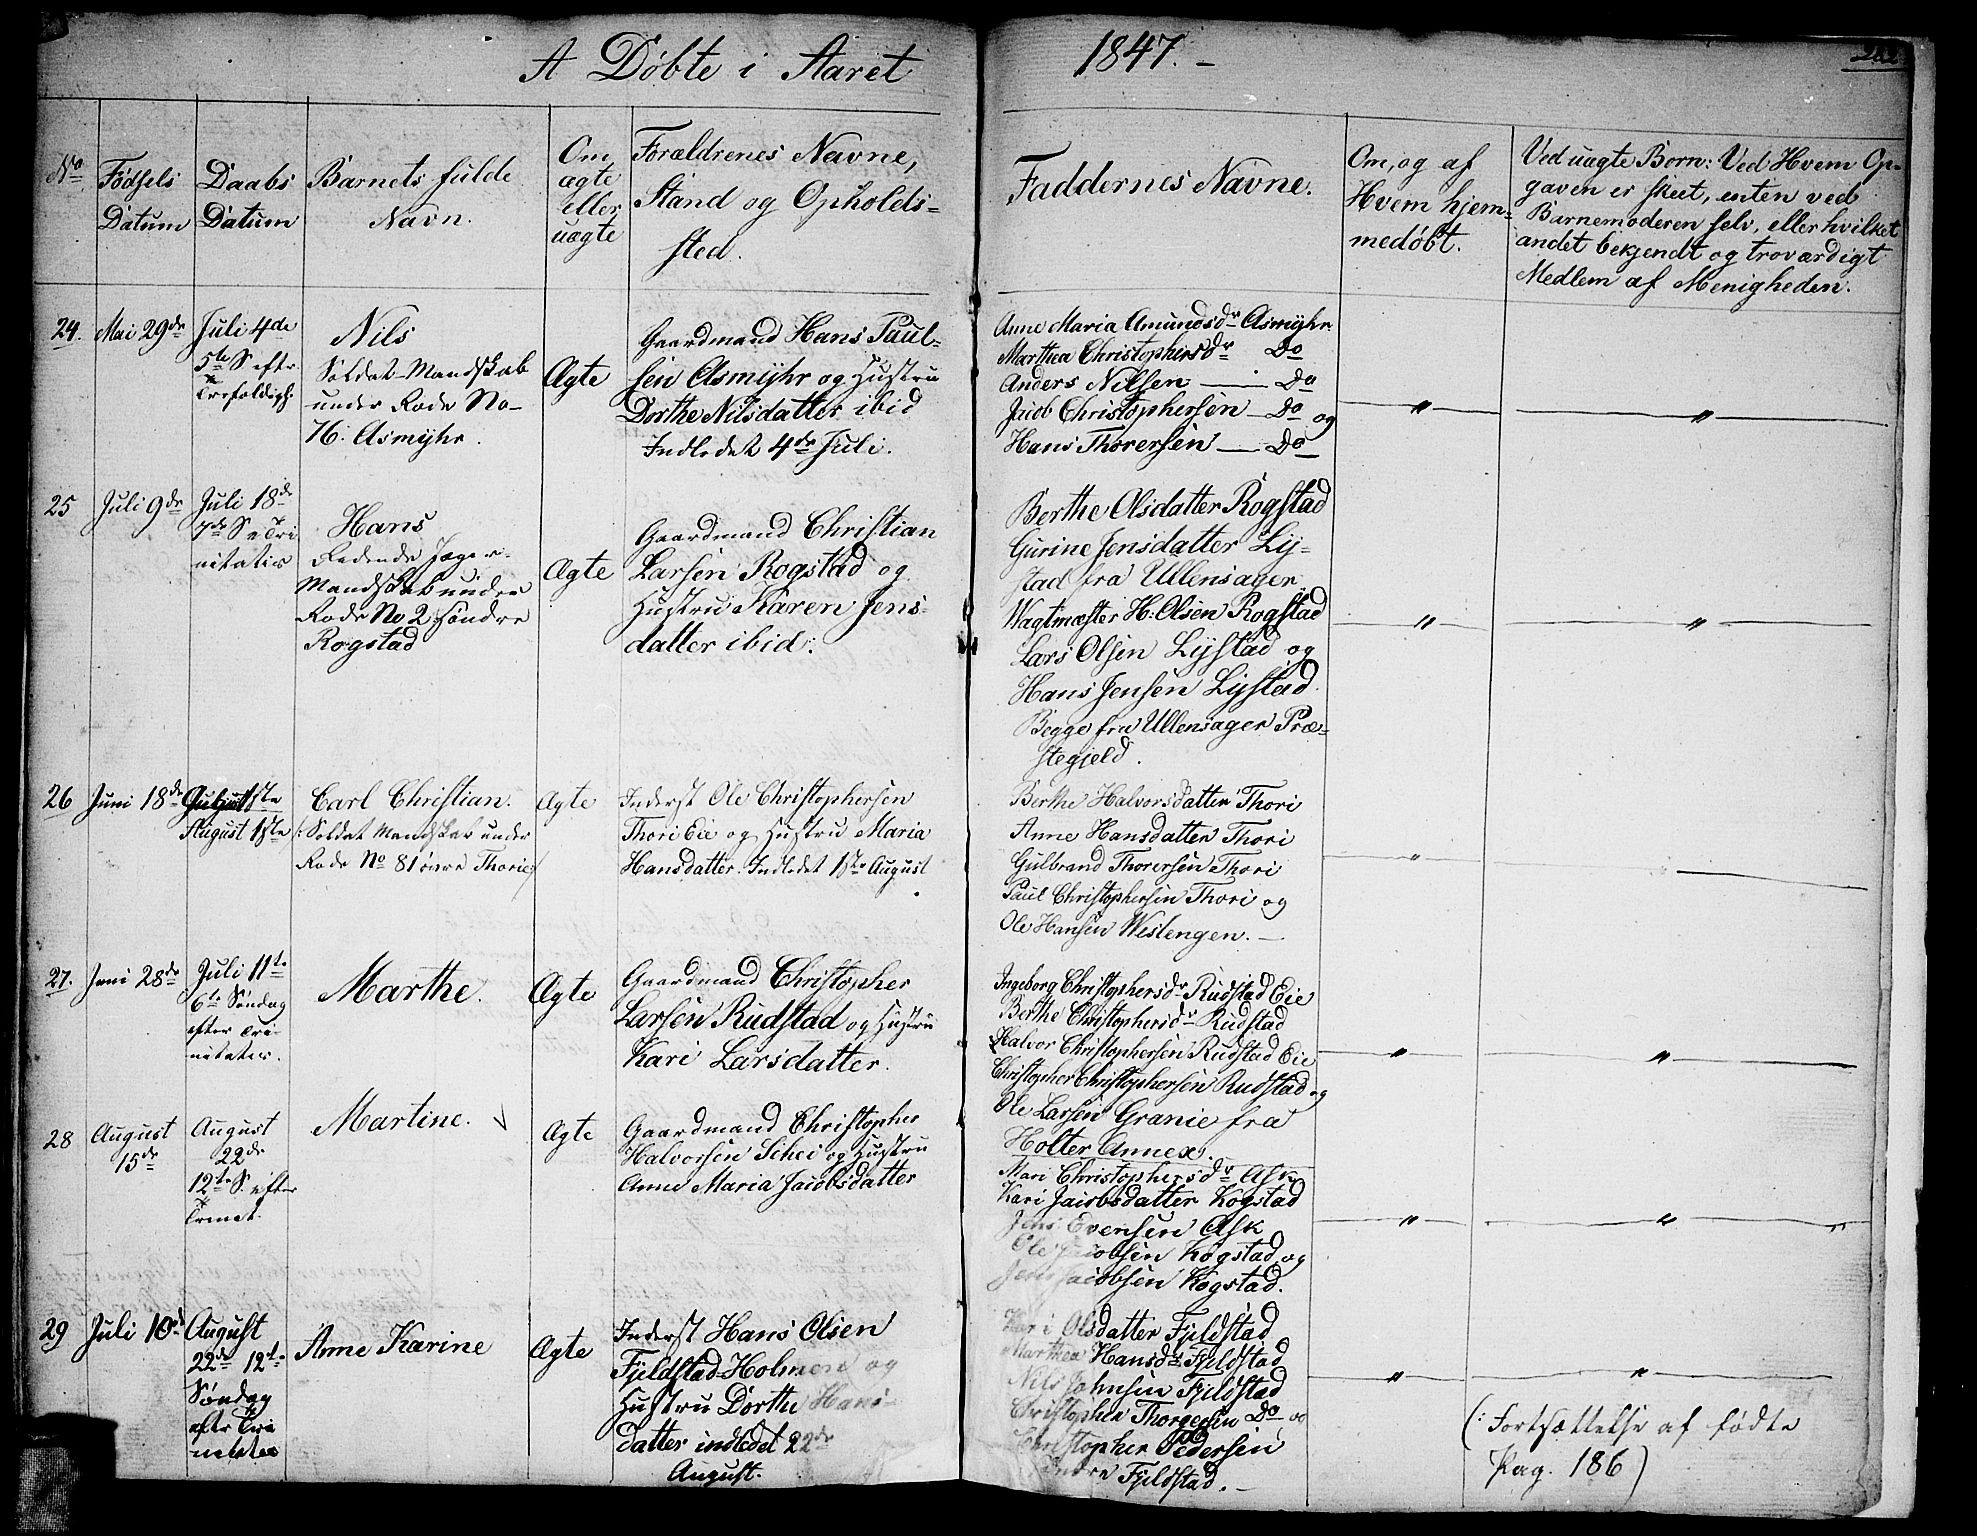 A Døbte i Aaret 1847. –
No
Fødsels
Datum
Daabs
Datum
Barnets fulde
Navn.
Om
ægte
eller
uægte
Forældrenes Navne,
Stand og Opholds=
sted.
Faddernes Navne.
Om, og af
Hvem hjem=
medøbt.
Ved uægte Børn: Ved Hvem Op=
gaven er skeet, enten ved
Barnemoderen selv, eller hvilket
andet bekjendt og troværdigt
Medlem af Menigheden.
24.
Mai 29de
Juli 4de
5te S. eftr.
Trefoldigh.
Nils
Soldat-Mandskab
under Rode No
76. Asmyhr.
Ægte
Gaardmand Hans Paul=
sen Asmyhr og Hustru
Dorthe Nilsdatter ibid
Indledet 4de Juli.
Anne Maria Amundsdr Asmyhr
Marthea Christophersdr Do
Anders Nilsen — Do
Jacob Christophersen — Do og
Hans Thorersen — Do
"
"
25
Juli 9de
Juli 18de
7de S. e Tri
nitatis
Hans
Ridende Jæger-
Mandskab under
Rode No 2 Søndre
Rogstad
Ægte
Gaardmand Christian
Larsen Rogstad og
Hustru Karen Jens=
datter ibid.
Berthe Olsdatter Rogstad
Gurine Jensdatter Ly=
stad fra Ullensager
Wagtmæster H: Olsen Rogstad
Lars Olsen Lystad og
Hans Jensen Lystad.
Begge fra Ullensager Præ=
stegjeld.
"
"
26
Juni 18de
August 1ste
Carl Christian.
(: Soldat Mandskab under
Rode No 81 övre Thorie :)
Ægte
Inderst Ole Christophersen
Thori Eie og Hustru Maria
Hansdatter. Indledet 1ste August
Berthe Halvorsdatter Thori
Anne Hansdatter Thori
Gulbrand Thorersen Thori
Paul Christophersen Thori og
Ole Hansen Westengen. —
"
27.
Juni 28de
Juli 11te
6te Søndag
efter Tri-
nitatis.
Marthe.
Ægte
Gaardmand Christopher
Larsen Rudstad og Hustru
Kari Larsdatter.
Ingeborg Christophersdr Rudstad Eie
Berthe Christophersdr Rudstad
Halvor Christophersen Rudstad Eie
Christopher Christophersen Rudstad og
Ole Larsen Granie fra
Holter Annex.
"
"
28
August
15de
August
22de
12te S. efter
Trinit.
Martine.
Ægte
Gaardmand Christopher
Halvorsen Schei og Hustru
Anne Maria Jacobsdatter
Mari Christophersdr Ask
Kari Jacobsdatter Kogstad
Jens Evensen Ask
Ole Jacobsen Kogstad og
Jens Jacobsen Kogstad.
"
"
29
Juli 10de
August
22de 12te
Søndag
eftr Tri
nitatis
Anne Karine
Ægte
Inderst Hans Olsen
Fjeldstad-Holmen og
Hustru Dorthe Hans=
datter indledet 22de
August.
Kari Olsdatter Fjeldstad
Marthea Hansdr Fjeldstad
Nils Johnsen Fjeldstad
Christopher Thorgersen Do og
Christopher Pedersen
Fjeldstad. —
"
"
(: Fortsættelse af fødte
Pag. 186)